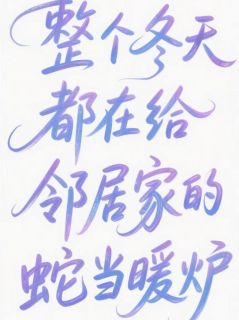 整个冬天
都在给
邻居家的
蛇当暖炉